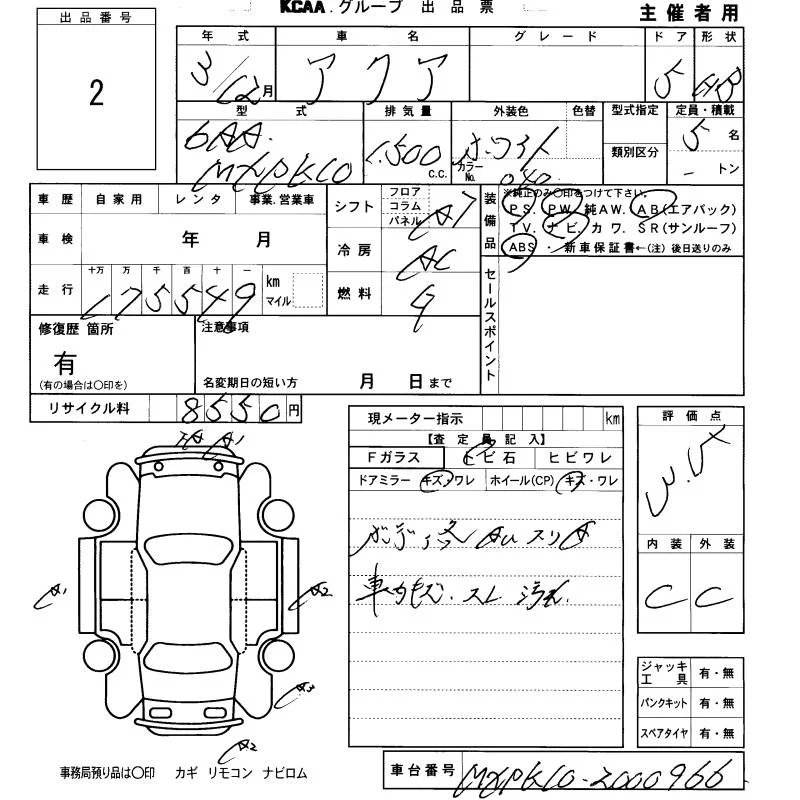 KCAA.グループ 出品票
主催者用
出品番号
2
年式 車名 グレード ドア 形状
3/12月 アクア 5 HB
型式 排気量 外装色 色替 型式指定 定員・積載
6AA- MXPK10 1500 C.C. ホワイト カラーNo. 040 類別区分 5名 - トン
車歴 自家用 レンタ 事業.営業車
車検 年 月
走行 十万 万 千 百 十 一 km マイル
175549
シフト フロア コラム パネル AT
冷房 AC
燃料 G
装備品
※純正のみ〇印をつけて下さい。
PS. PW. 純AW. AB(エアバック)
TV. ナビ. カワ. SR(サンルーフ)
ABS ・ 新車保証書←(注) 後日送りのみ
セールスポイント
修復歴 箇所
有
(有の場合は〇印を)
注意事項
名変期日の短い方 月 日まで
リサイクル料 8550円
現メーター指示 km
【査定員記入】
Fガラス トビ石 ヒビワレ
ドアミラー キズ・ワレ ホイール(CP) キズ・ワレ
スリ
車内キズ. スレ 汚れ.
評価点
内装 外装
C C
A1
A1
A2
A3
A2
ジャッキ 工具 有・無
パンクキット 有・無
スペアタイヤ 有・無
事務局預り品は〇印 カギ リモコン ナビロム
車台番号 MXPK10-2000966